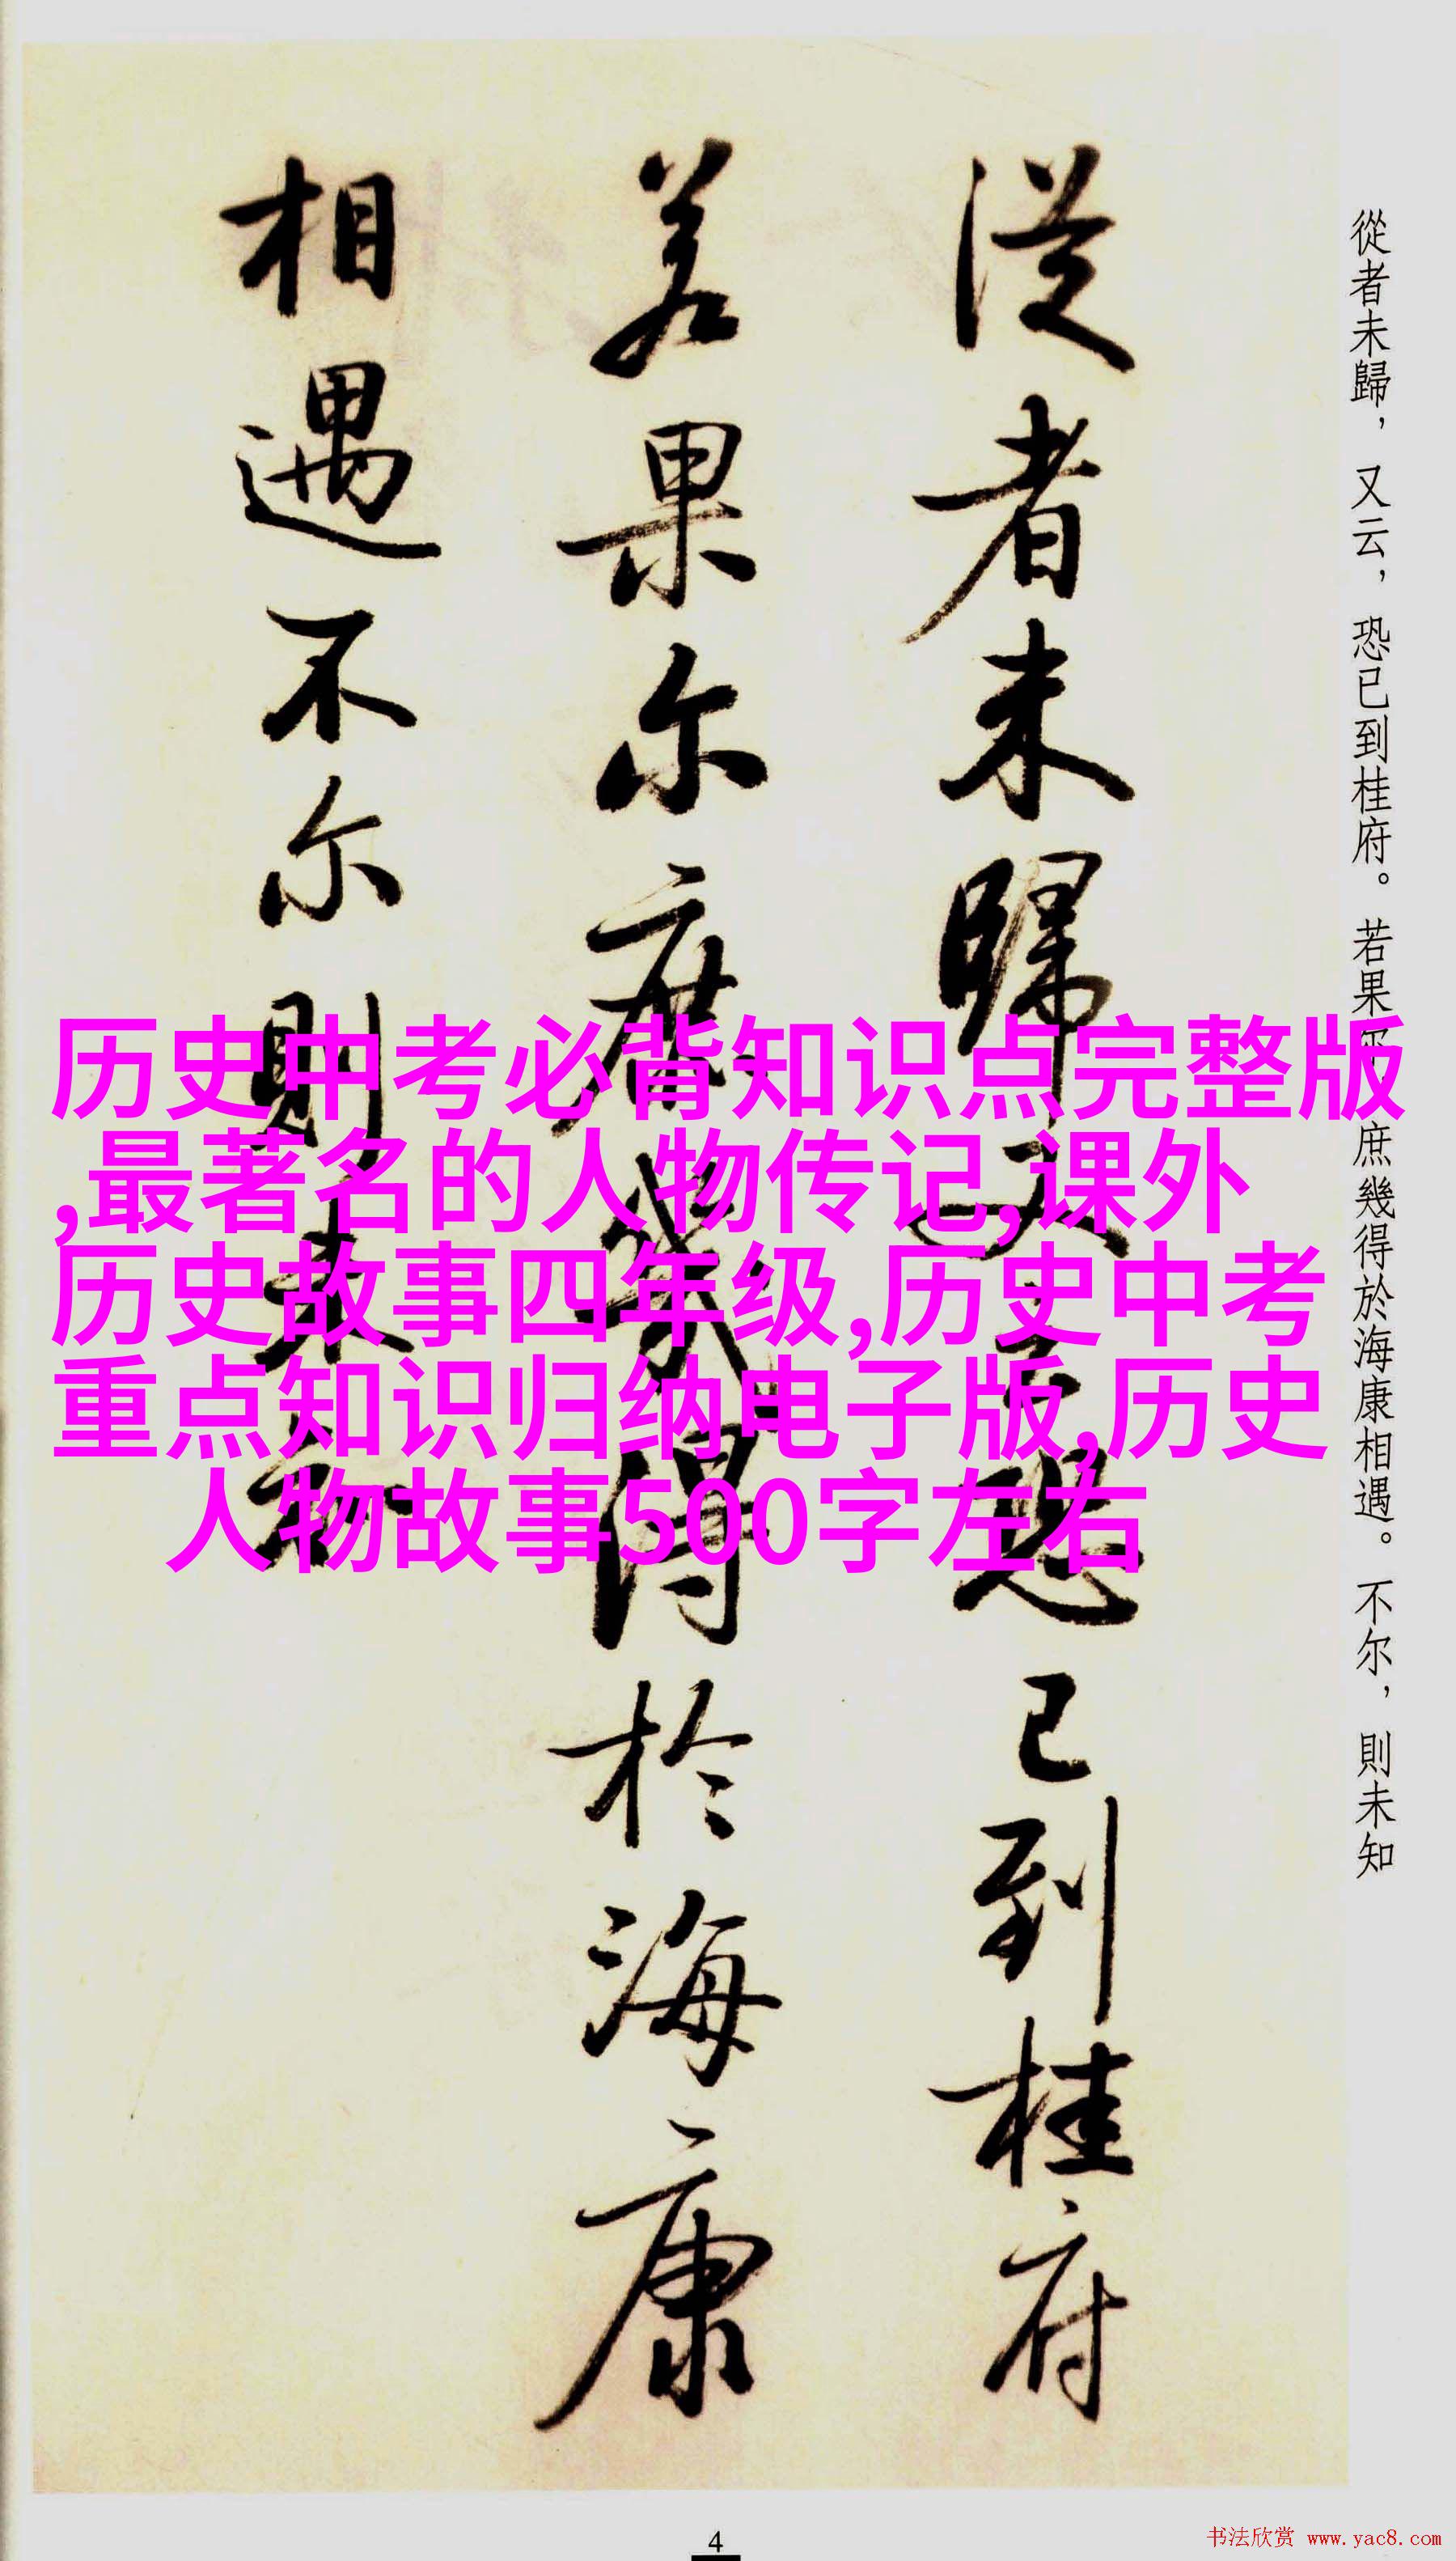 從者未歸，又云，恐已到桂府。若果尔，庶幾得於海康相遇。不尔，則未知
从者未歸又云恐已到桂府
若果尔庶幾得於海康
相遇不尔則未知
历史中考必背知识点完整版
,最著名的人物传记,课外
历史故事四年级,历史中考
重点知识归纳电子版,历史
人物故事500字左右
4
书法欣赏 www.yac8.com